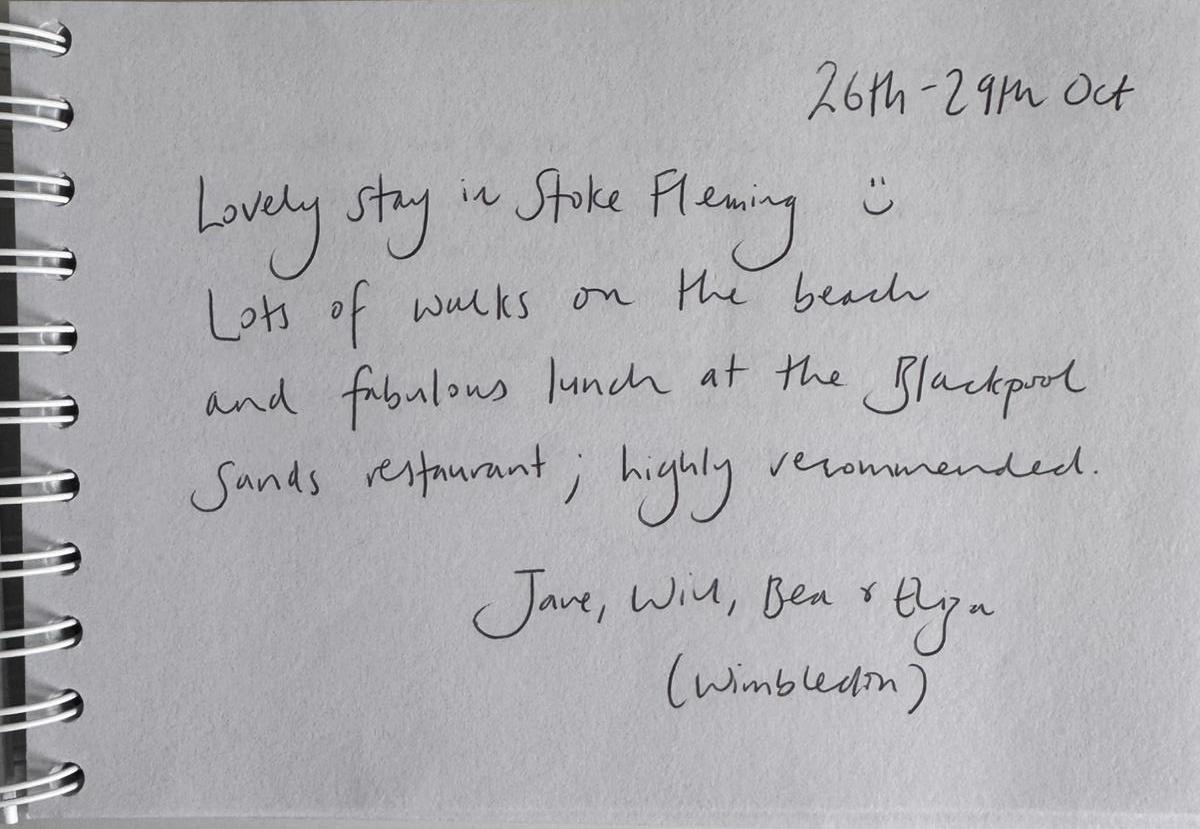 26th - 29th Oct
Lovely stay in Stoke Fleming :)
Lots of walks on the beach
and fabulous lunch at the Blackpool
Sands restaurant; highly recommended.
Jane, Will, Bea & Eliza
(Wimbledon)